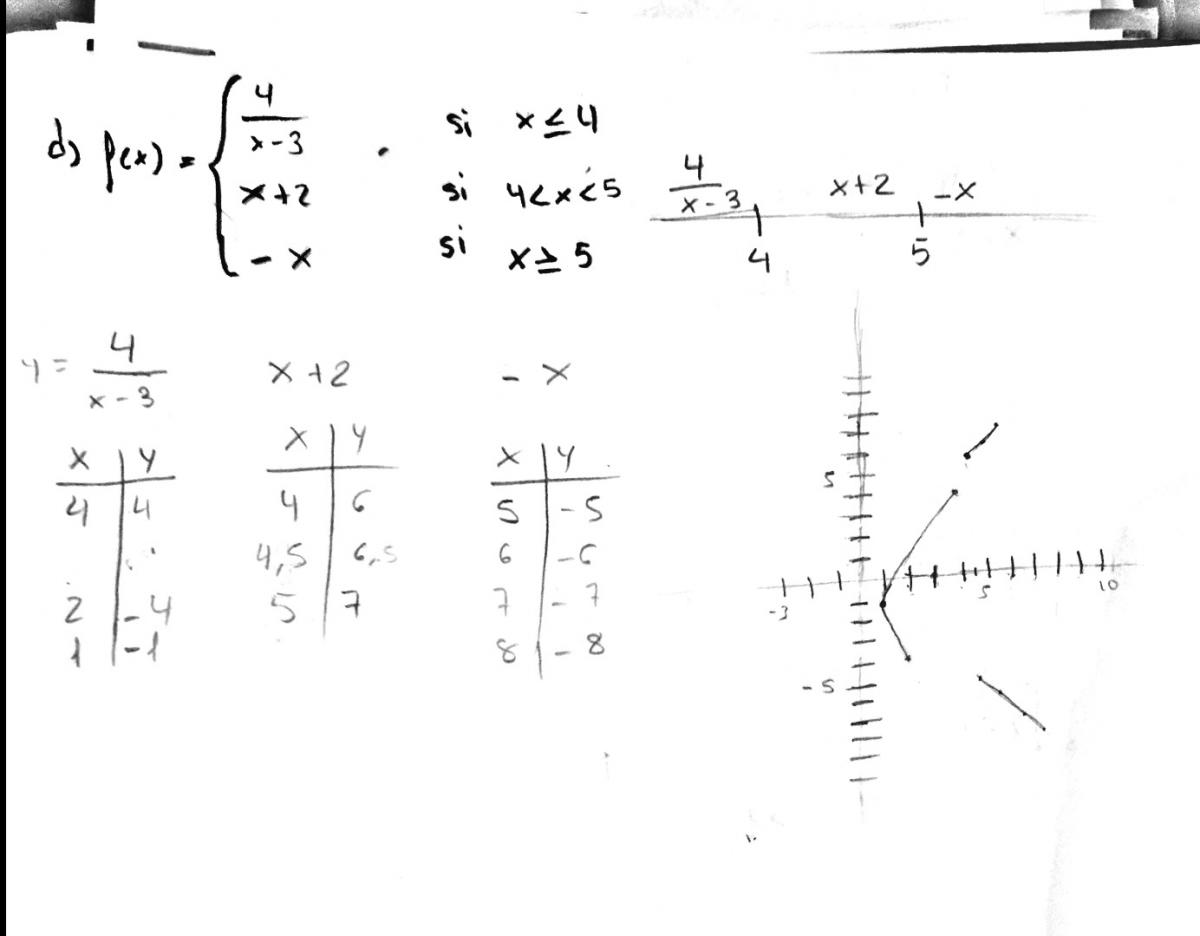 d) f(x) = { 4/(x-3) si x ≤ 4
x+2 si 4<x<5
-x si x ≥ 5
4/(x-3) x+2 -x
4 5
y = 4/(x-3)
x | y
4 | 4
2 | -4
1 | -1
x+2
x | y
4 | 6
4,5 | 6,5
5 | 7
-x
x | y
5 | -5
6 | -6
7 | -7
8 | -8
5
-3 5 10
-5